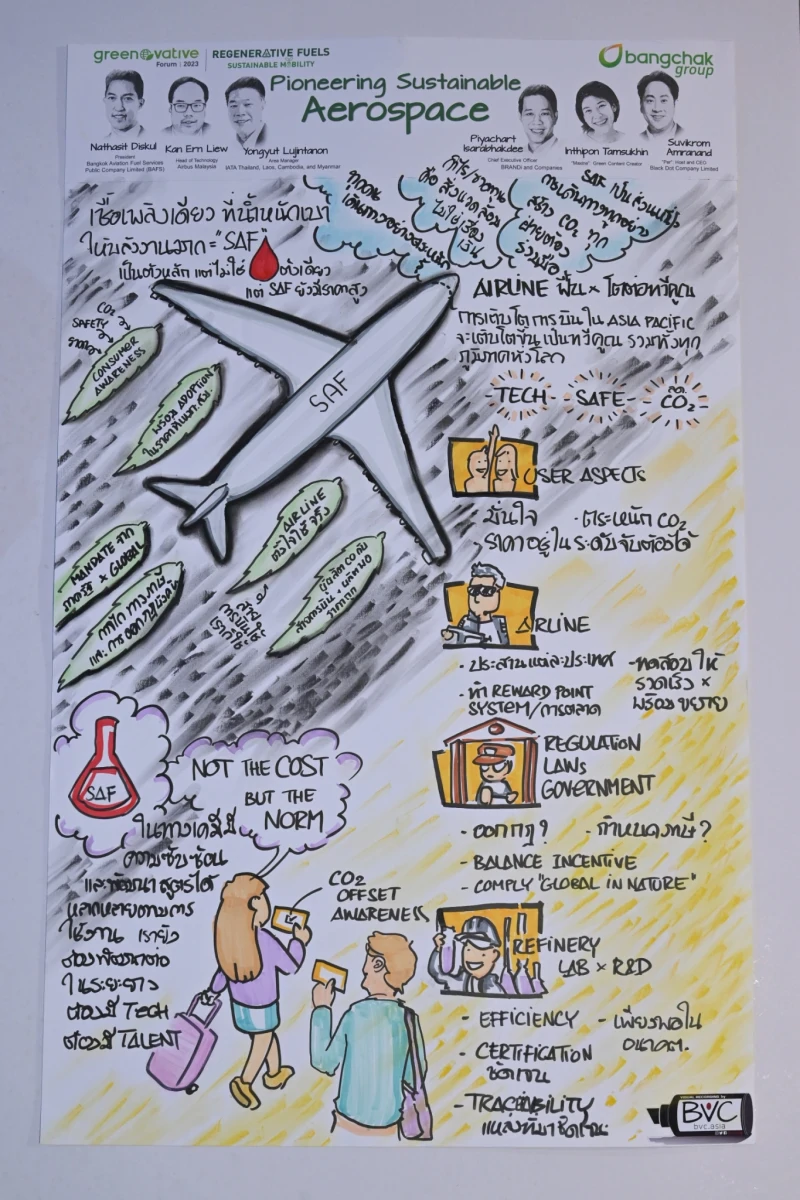 greenovative
Forum | 2023
REGENERATIVE FUELS
SUSTAINABLE MOBILITY
bangchak
group
Pioneering Sustainable
Aerospace
Nathasit Diskul
President
Bangkok Aviation Fuel Services
Public Company Limited (BAFS)
Kan Ern Liew
Head of Technology
Airbus Malaysia
Yongyut Lujintanon
Area Manager
IATA Thailand, Laos, Cambodia, and Myanmar
Piyachart
Isarabhakdee
Chief Executive Officer
BRANDi and Companies
Inthipon Tamsukhin
Green Content Creator
Suvikrom
Amranand
Host and CEO
Black Dot Company Limited
เชื้อเพลิงเดียว ที่น้ำหนักเบา
ให้พลังงานมาก = "SAF"
เป็นตัวหลัก แต่ไม่ใช่ ตัวเดียว
แต่ SAF ยังมีราคาสูง
ทุกคน
เดินทางอย่างตระหนัก
กำไร/ขาดทุน
คือ สิ่งแวดล้อม
ไม่ใช่เรื่อง
เงิน
การเดินทางทุกอย่าง
สร้าง CO2 ทุก
ฝ่ายต้อง
ร่วมมือ
SAF เป็นส่วนหนึ่ง
AIRLINE ฟื้น × โตต่อทวีคูณ
การเติบโตการบินใน ASIA PACIFIC
จะเติบโตขึ้น เป็นทวีคูณ รวมทั้งทุก
ภูมิภาคทั่วโลก
TECH - SAFE - ลด CO2
CO2
SAFETY
ราคา
CONSUMER
AWARENESS
พร้อม ADOPTION
SAF
MANDATE จาก
ภาครัฐ × GLOBAL
AIRLINE
ตั้งใจใช้ จริง
สาย
การบินใช้
เราก็ใช้
USER ASPECTS
มั่นใจ · ตระหนัก CO2
ราคาอยู่ใน ระดับจับต้องได้
AIRLINE
· ประสานแต่ละประเทศ
· ทำ REWARD POINT
SYSTEM/การตลาด
- ทดสอบ ให้
รวดเร็ว ×
พร้อม ขยาย
REGULATION
LAWS
GOVERNMENT
- ออกกฎ? - กำหนดภาษี?
- BALANCE INCENTIVE
- COMPLY "GLOBAL IN NATURE"
REFINERY
LAB × R&D
- EFFICIENCY
- เพียงพอใน
อนาคต.
- CERTIFICATION
ชัดเจน
- TRACEABILITY
แหล่งที่มาชัดเจน
SAF
NOT THE COST
BUT THE
NORM
ในทางเคมีมี
ความซับซ้อน
และพัฒนาสูตรได้
หลากหลายตามการ
ใช้งาน เรายัง
ต้องพัฒนาต่อ
ในระยะยาว
ต้องมี TECH
ต้องมี TALENT
CO2
OFFSET
AWARENESS
VISUAL RECORDING by
BVC
bvc.asia